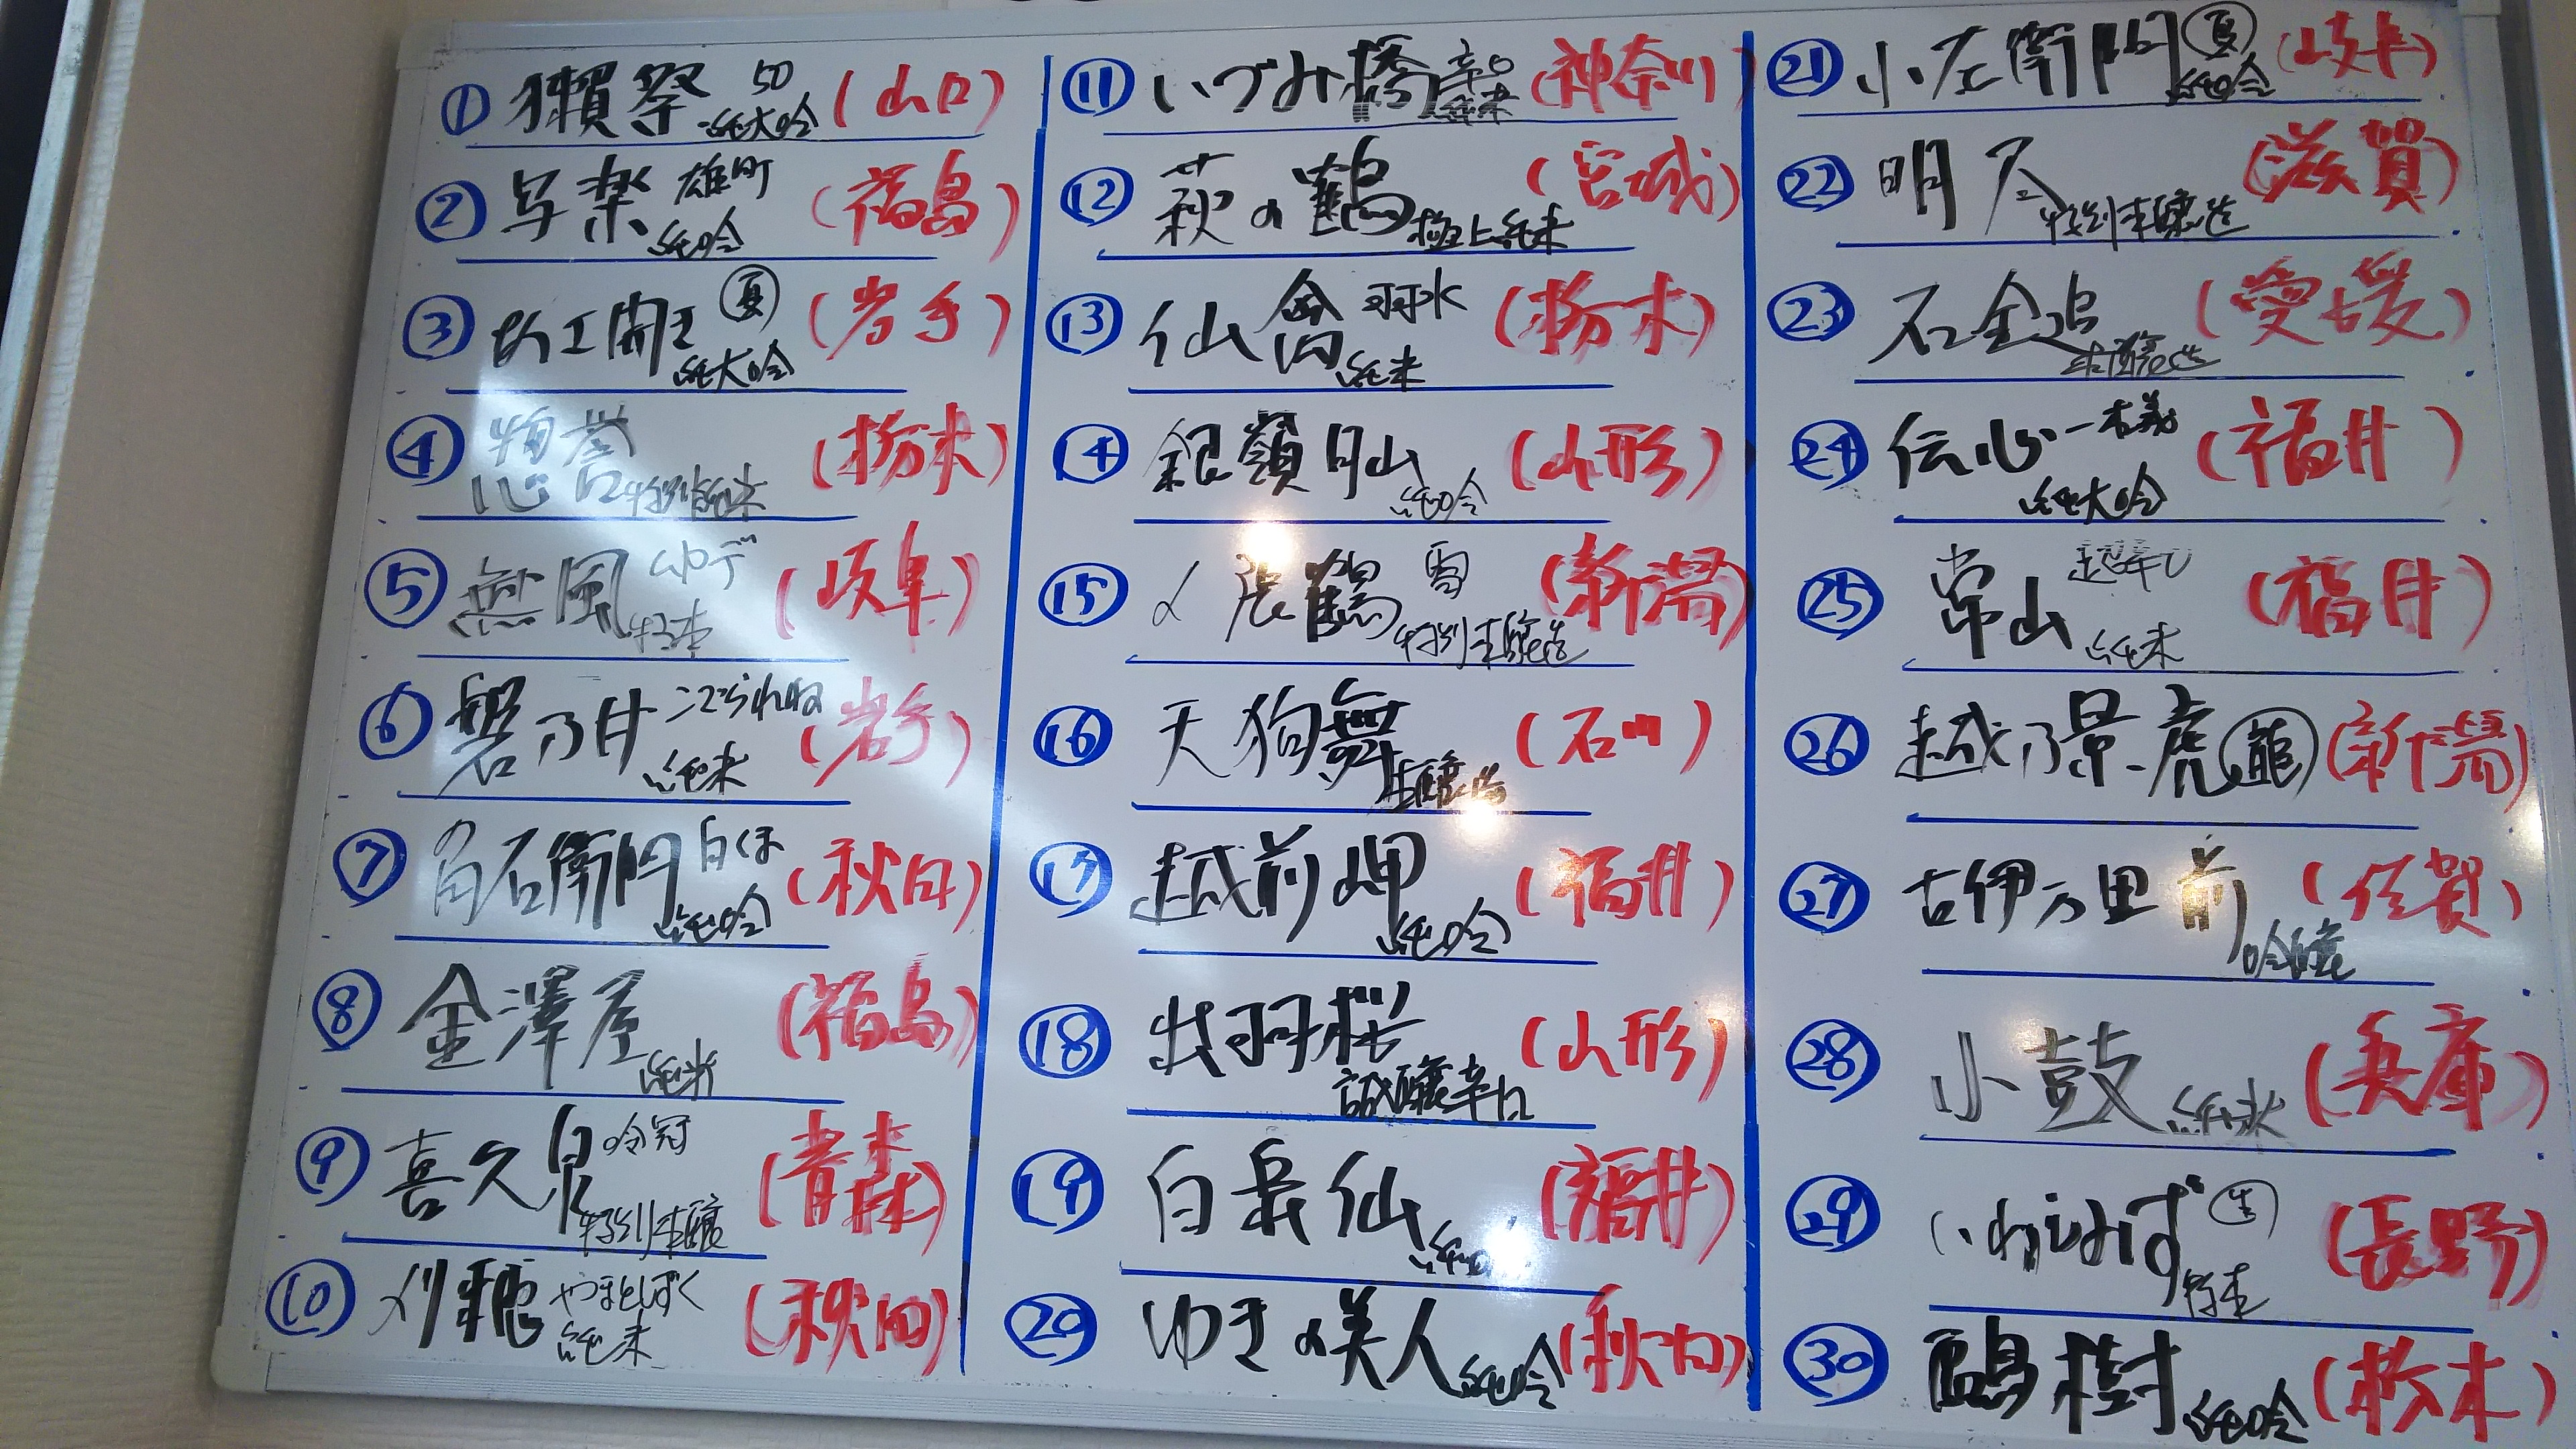 ① 獺祭 50 純大吟 (山口)
② 写楽 雄町 純吟 (福島)
③ 南部関 夏 純大吟 (岩手)
④ 惣誉 特別純米 (栃木)
⑤ 無風 ムロデ 特本 (岐阜)
⑥ 磐乃井 こでられね 純米 (岩手)
⑦ 角右衛門 白くま 純吟 (秋田)
⑧ 金澤屋 純米 (福島)
⑨ 喜久泉 吟冠 特別本醸 (青森)
⑩ 刈穂 やまとしずく 純米 (秋田)
⑪ いづみ橋 辛口 純米 (神奈川)
⑫ 萩の鶴 極上純米 (宮城)
⑬ 仙禽 羽水 純米 (栃木)
⑭ 銀嶺月山 純吟 (山形)
⑮ 〆張鶴 雪 特別本醸造 (新潟)
⑯ 天狗舞 本醸造 (石川)
⑰ 越前岬 純吟 (福井)
⑱ 出羽桜 誠醸辛口 (山形)
⑲ 白岳仙 純吟 (福井)
⑳ ゆきの美人 純吟 (秋田)
㉑ 小左衛門 夏 純吟 (岐阜)
㉒ 明尽 特別本醸造 (滋賀)
㉓ 石鎚 本醸造 (愛媛)
㉔ 伝心 一本義 純大吟 (福井)
㉕ 常山 超辛口 純米 (福井)
㉖ 越乃景虎 龍 (新潟)
㉗ 古伊万里 前 吟醸 (佐賀)
㉘ 小鼓 純米 (兵庫)
㉙ いわしみず 生 特本 (長野)
㉚ 鷗樹 純吟 (栃木)